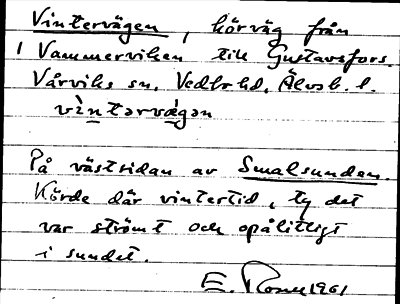 Vintervägen, körväg från
1 Vammerviken till Gustavsfors.
Vårviks sn, Vedbo hd, Älvsb. l.
vìntərvæ̀gən
På västsidan av Smalsunden.
Körde där vintertid, ty det
var strömt och opålitligt
i sundet.
E. 1961